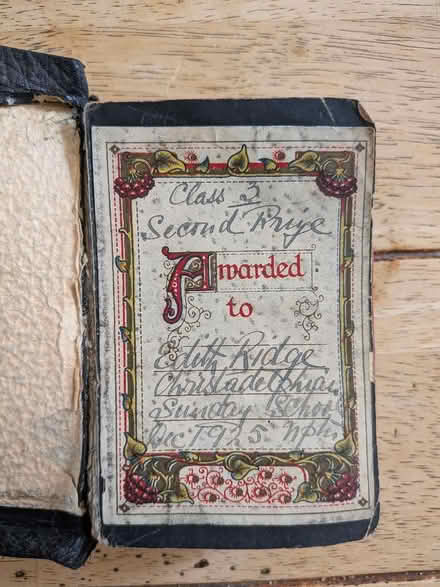 Class 3
Second Prize
Awarded
to
Edith Ridge
Christadelphian
Sunday School
Dec 1925. Nptn